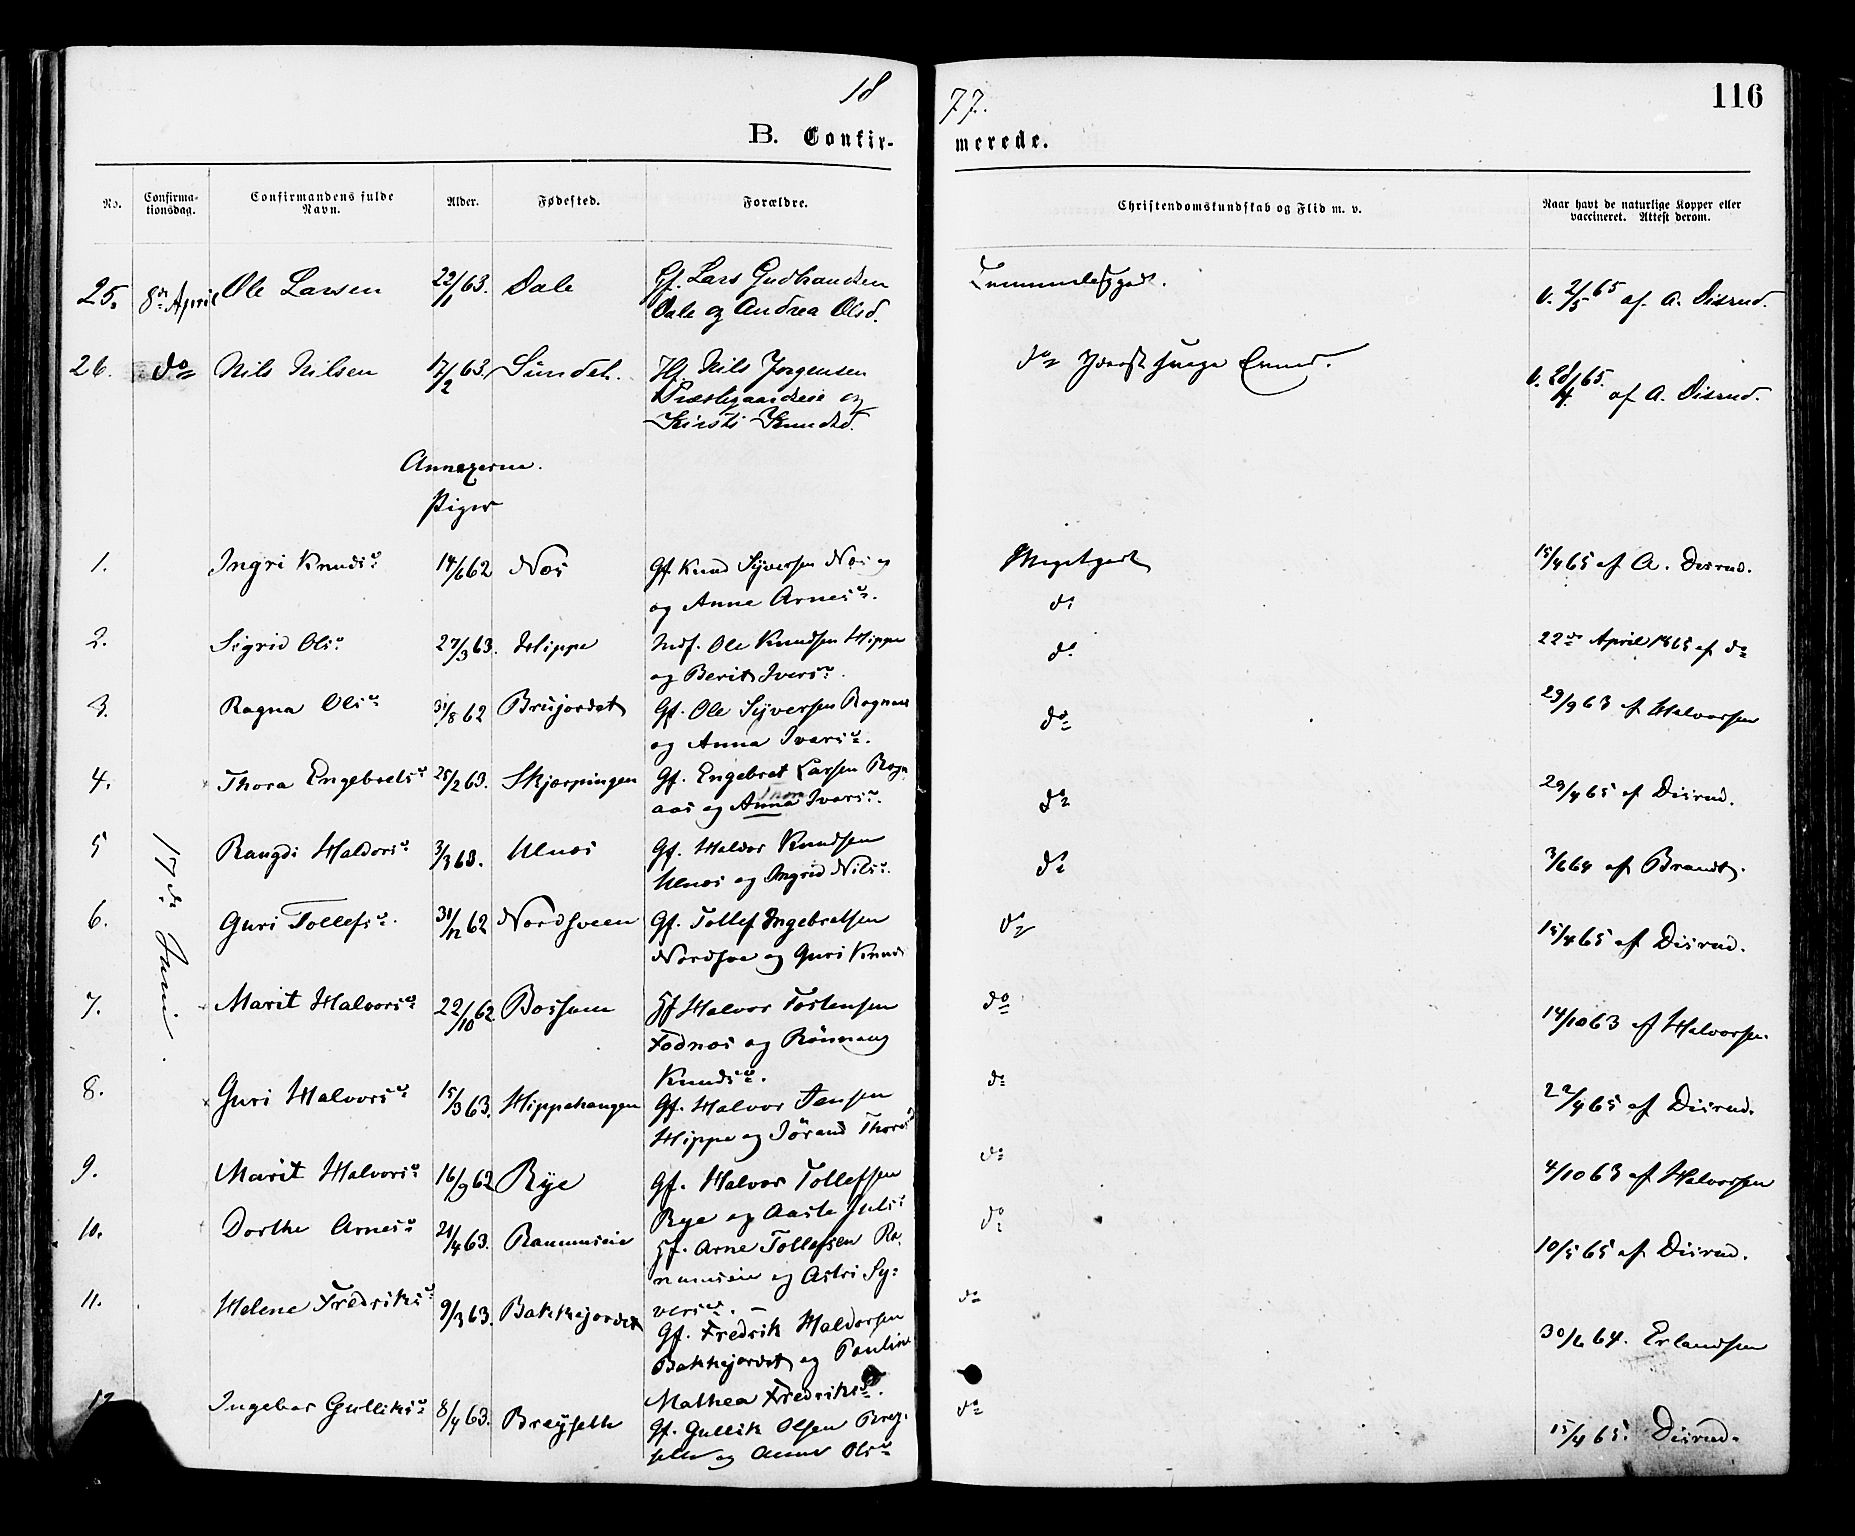 18 77. 116
B. Confir- merede.
No. Confirma-tionsdag. Confirmandens fulde Navn. Alder. Fødested. Forældre. Christendomskundskab og Flid m. v. Naar havt de naturlige Kopper eller vaccineret. Attest derom.
25. 8de April Ole Larsen 22/1 63. Dale Gf. Lars Gudbrandsen v. 2/5 65 af A. Disrud.
Dale og Andrea Olsd.
26. do Nils Nilsen 17/2 63. Sundeh. Hf. Nils Jørgensen do v. 28/4 65. af A. Disrud.
Præstegaardseie og
Kirsti Knudsd.
Annexerne.
Piger
17de Juni.
1. Ingri Knudsd. 14/6 62 Nos Gf. Knud Syversen Nos og Megetgodt 15/4 65 af A. Disrud.
og Anne Arnesd. do
2. Sigrid Olsd. 27/3 63. Hippe Indf. Ole Knudsen Hippe do 22de April 1865 af do
og Berit Iversd.
3. Ragna Olsd. 31/8 62 Brujordet Gf. Ole Syversen Rognaas do 29/9 63 af Halvorsen
og Anna Ivarsd.
4. Thora Engebretsd. 25/2 63. Skjærpingen Gf. Engebret Larsen Rogn do 29/4 65 af Disrud.
aas og Anna Ivarsd.
5 Rangdi Haldorsd. 3/3 63. Ulnos Gf. Haldor Knudsen do 3/6 64 af Brandt.
Ulnos og Ingrid Nilsd.
6. Guri Tollefsd. 31/12 62 Nordsveen Gf. Tollef Ingebretsen do 15/4 65 af Disrud.
og Guri Knuds
7. Marit Halvorsd. 22/10 62 Hf Halvor Tostensen do 14/10 63 af Halvorsen.
Fodnos og Rønnaug
Knudsd.
8. Guri Halvorsd. 15/3 63. Hippehaugen Gf. Halvor Jensen do 22/4 65 af Disrud.
Hippe og Jørand Thorsd
9. Marit Halvorsd. 16/9 62 Rye Gf. Halvor Tollefsen do 4/10 63 af Halvorsen
Rye og Aaste
10. Dorthe Arnesd. 21/4 63. Ranumseie Hf. Arne Tollefsen Ra- do 10/5 65 af Disrud.
numseie og Astri Sy-
versd.
11. Helene Fredriksd. 9/3 63. Bakkejordet Gf. Fredrik Haldorsen do 30/6 64. Erlandsen
Bakkejordet og Pauline
Mathea Fredriksd.
12 Ingebor Gulliksd. 8/4 63. Breyseth Gf. Gullik Olsen Brey- do 15/4 65. Disrud.
seth og Anne Olsd